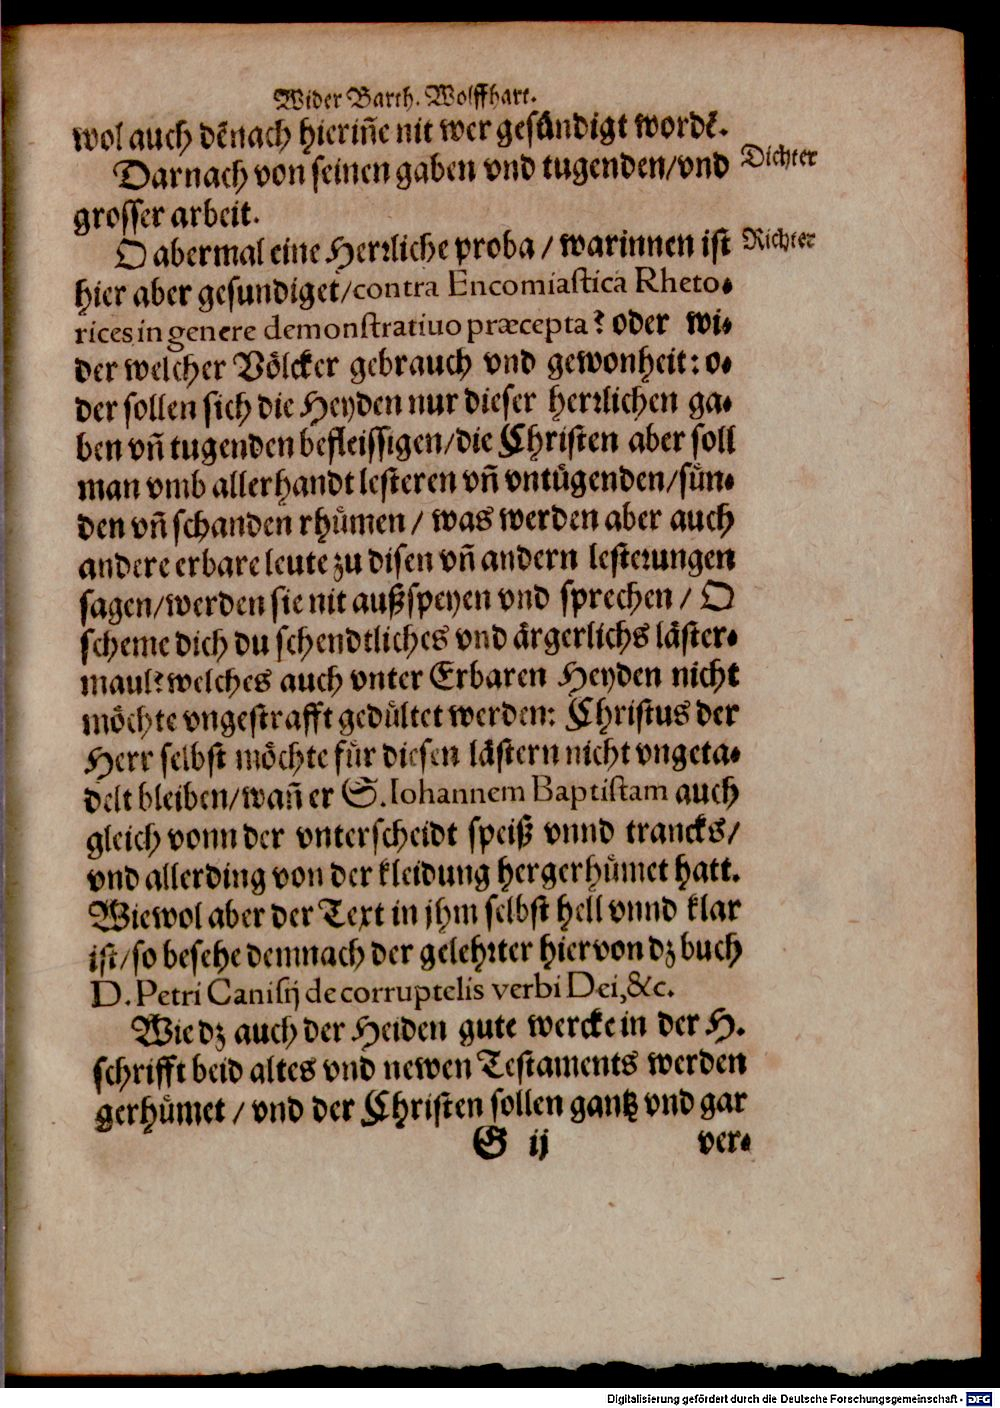 Wider Barth. Wolffhart.
wol auch dẽnach hieriñe nit wer gesündigt wordẽ.
Darnach von seinen gaben vnd tugenden/vnd
Dichter
grosser arbeit.
O abermal eine Herrliche proba / warinnen ist
Richter
hier aber gesundiget/contra Encomiastica Rheto-
rices in genere demonstratiuo præcepta? oder wi-
der welcher Völcker gebrauch vnd gewonheit: o-
der sollen sich die Heyden nur dieser herrlichen ga-
ben vñ tugenden befleissigen/die Christen aber soll
man vmb allerhandt lesteren vñ vntügenden/sün-
den vñ schanden rhümen / was werden aber auch
andere erbare leute zu disen vñ andern lesterungen
sagen/werden sie nit außspeyen vnd sprechen / O
scheme dich du schendtliches vnd ärgerlichs läster-
maul? welches auch vnter Erbaren Heyden nicht
möchte vngestrafft gedültet werden: Christus der
Herr selbst möchte für diesen lästern nicht vngeta-
delt bleiben/wañ er S. Iohannem Baptistam auch
gleich vonn der vnterscheidt speiß vnnd trancks/
vnd allerding von der kleidung hergerhümet hatt.
Wiewol aber der Text in jhm selbst hell vnnd klar
ist/so besehe demnach der gelehrter hiervon dz buch
D. Petri Canisij de corruptelis verbi Dei, &c.
Wie dz auch der Heiden gute wercke in der H.
schrifft beid altes vnd newen Testaments werden
gerhümet / vnd der Christen sollen gantz vnd gar
G ij
ver-
Digitalisierung gefördert durch die Deutsche Forschungsgemeinschaft - DFG